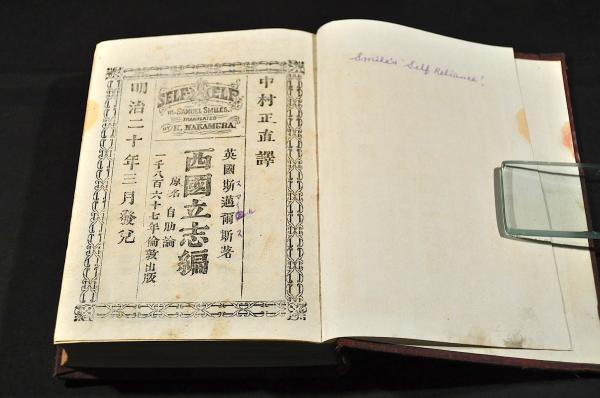 中村正直譯
SELF HELP
BY SAMUEL SMILES.
TRANSLATED
BY K. NAKAMURA.
英國斯邁爾斯著
西國立志編
原名 自助論
一千八百六十七年倫敦出版
明治二十年三月發兌
Smile's 'Self Reliance!